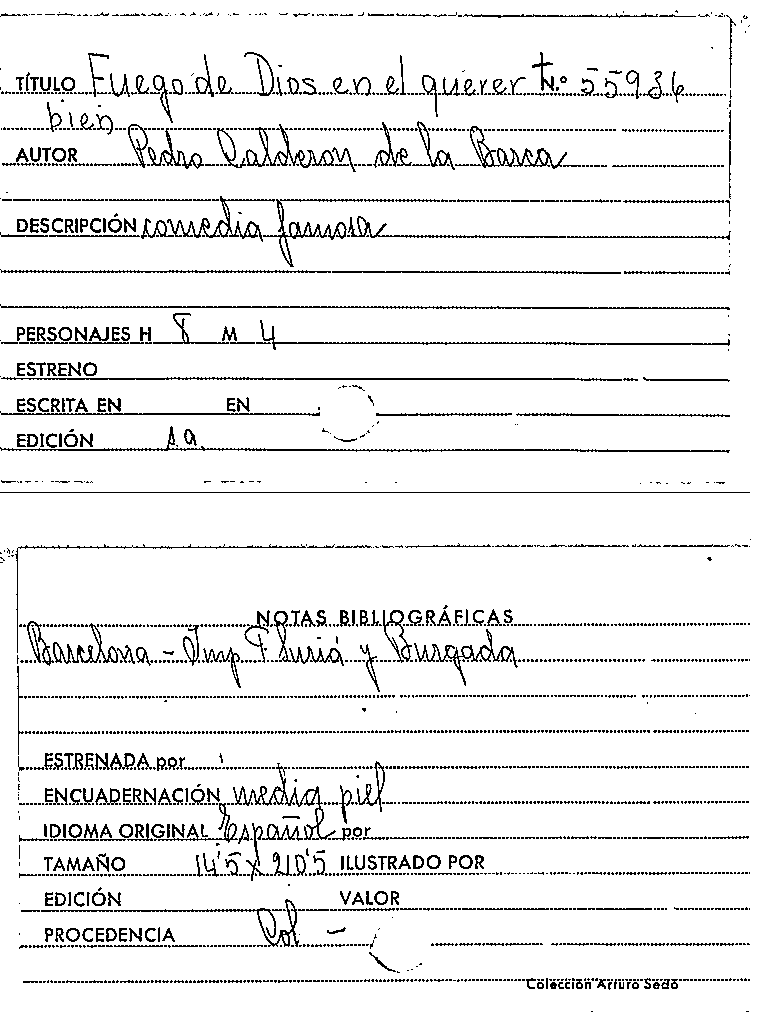 TÍTULO Fuego de Dios en el querer N.º 55936
bien
AUTOR Pedro Calderon de la Barca
DESCRIPCIÓN comedia famosa
PERSONAJES H 8 M 4
ESTRENO
ESCRITA EN EN
EDICIÓN 1a.
NOTAS BIBLIOGRÁFICAS
Barcelona - Imp y Burgada
ESTRENADA por
ENCUADERNACIÓN media piel
IDIOMA ORIGINAL Español por
TAMAÑO 14'5 x 210'5 ILUSTRADO POR
EDICIÓN VALOR
PROCEDENCIA Col -
Colección Arturo Sedó